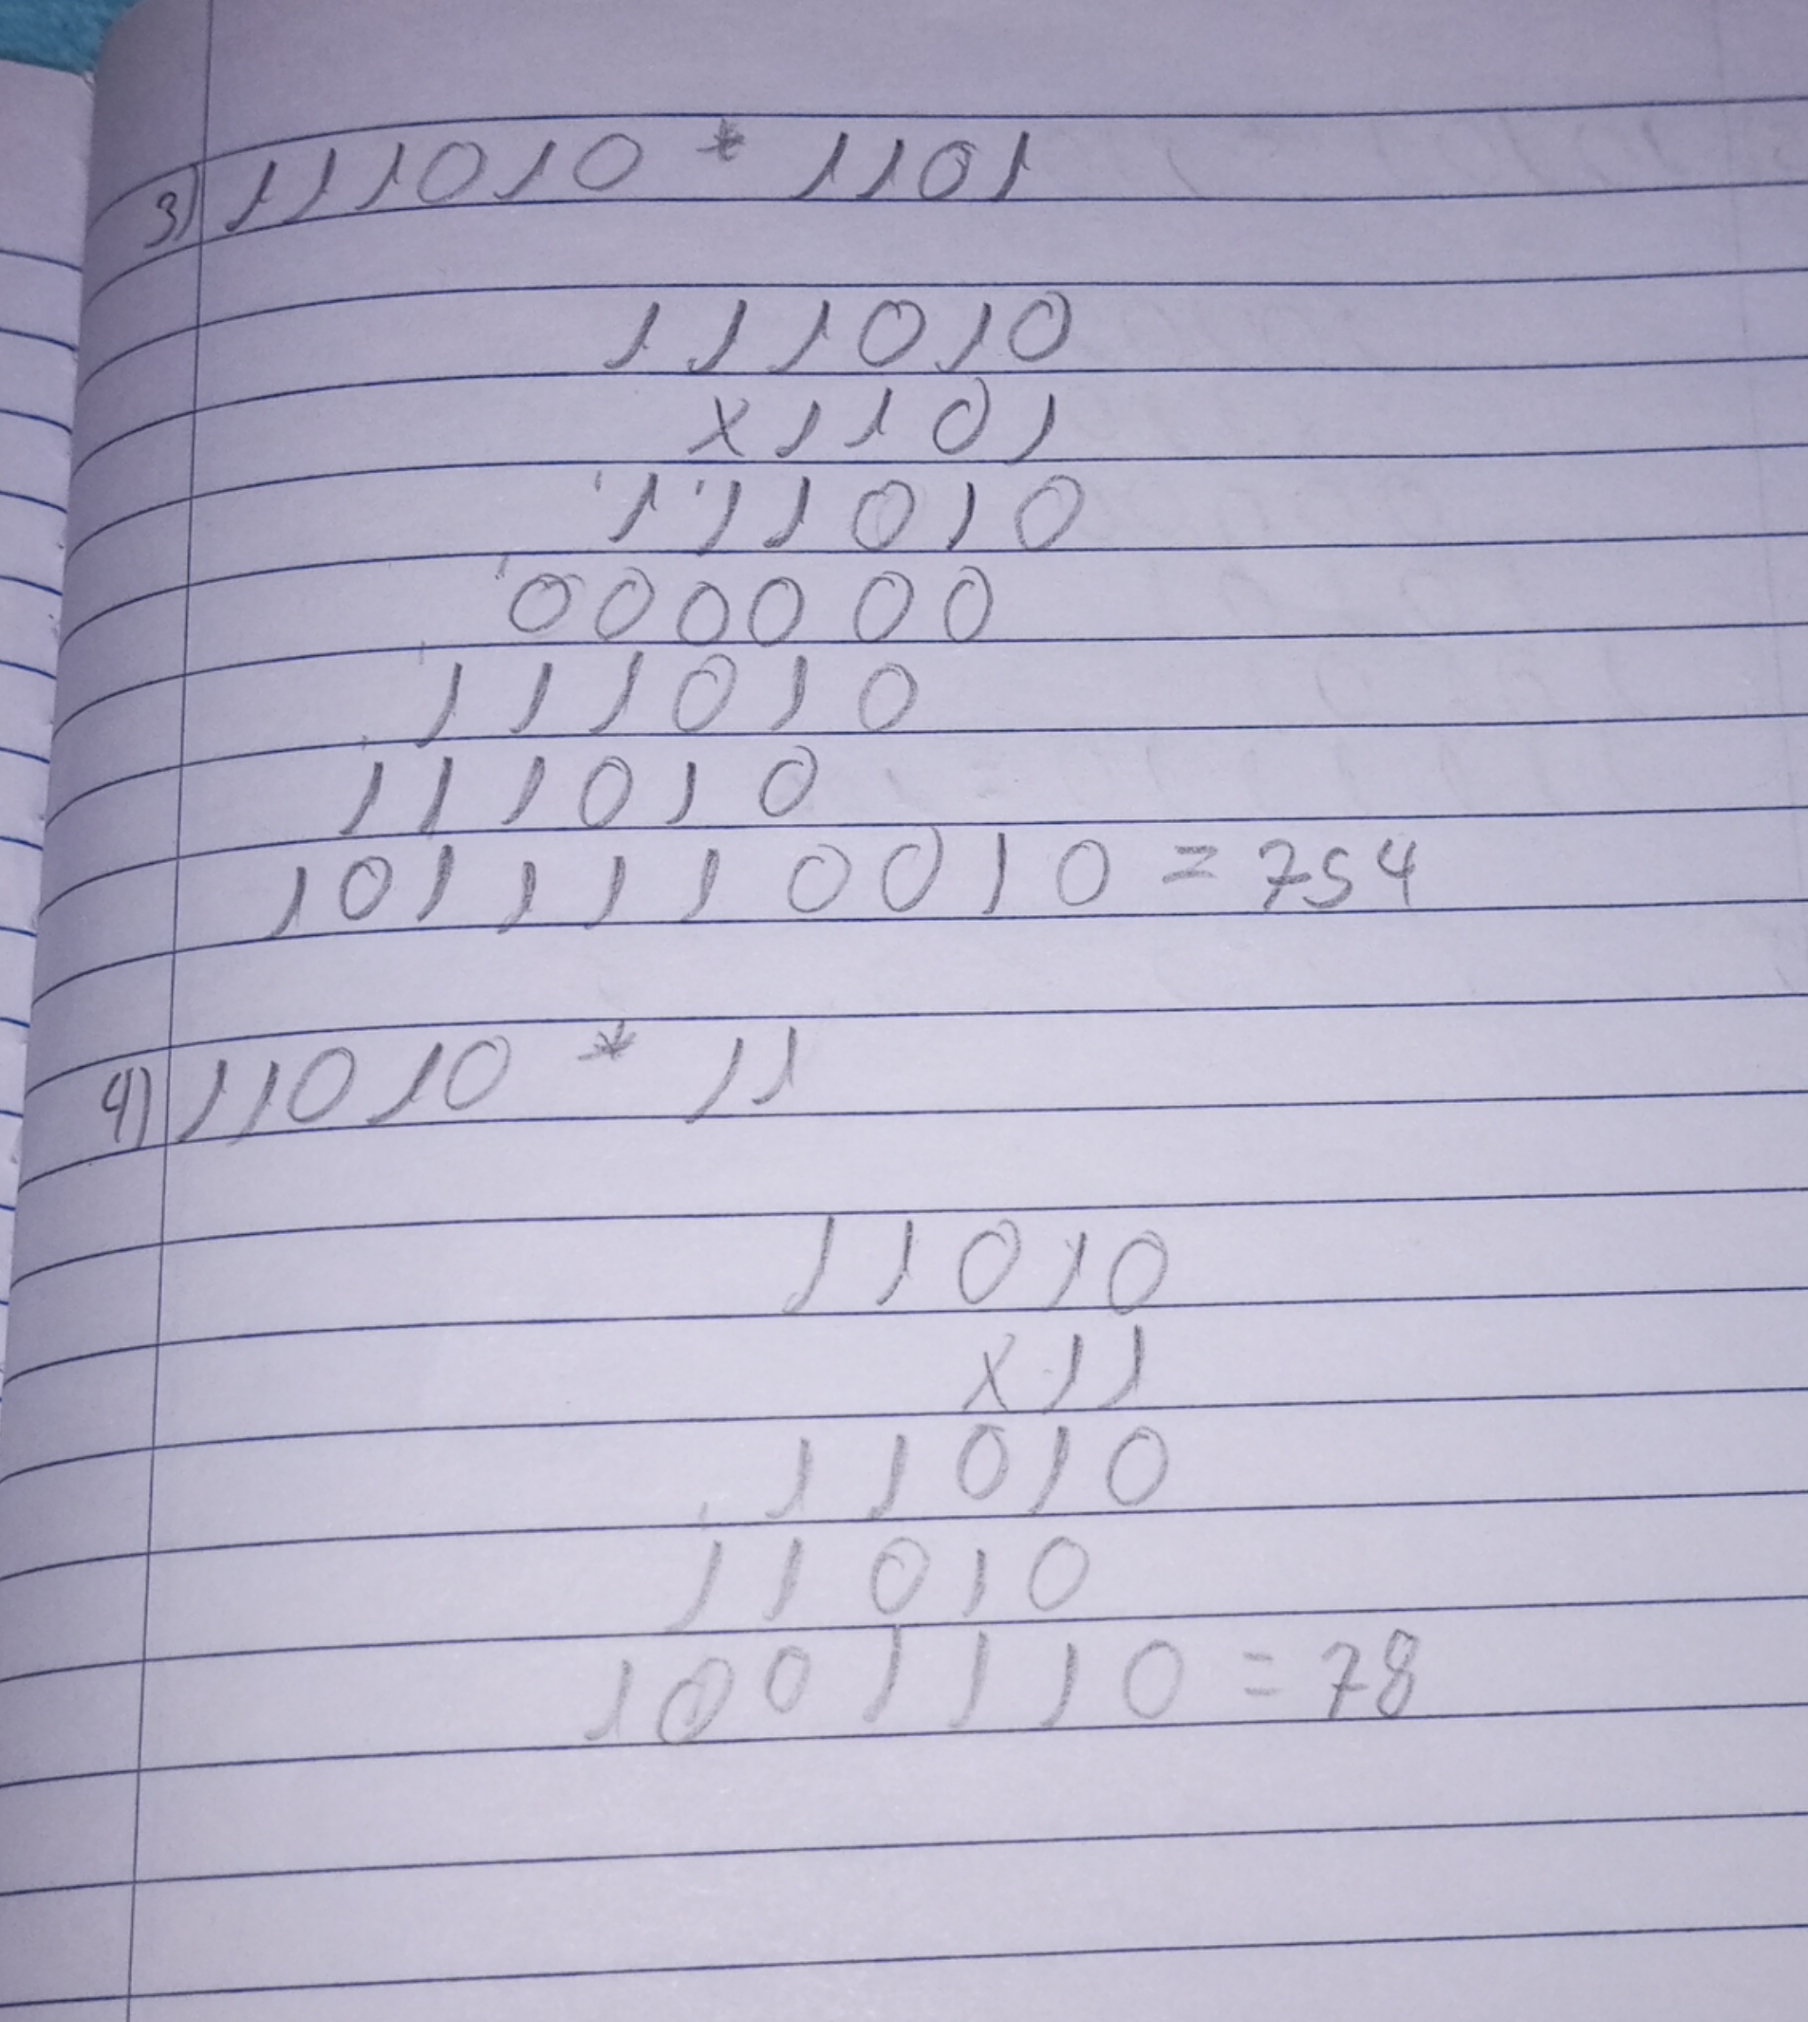 3) 111010 * 1101
111010
x1101
111010
000000
111010
111010
1011110010 = 754
4) 11010 * 11
11010
x11
11010
11010
1001110 = 78